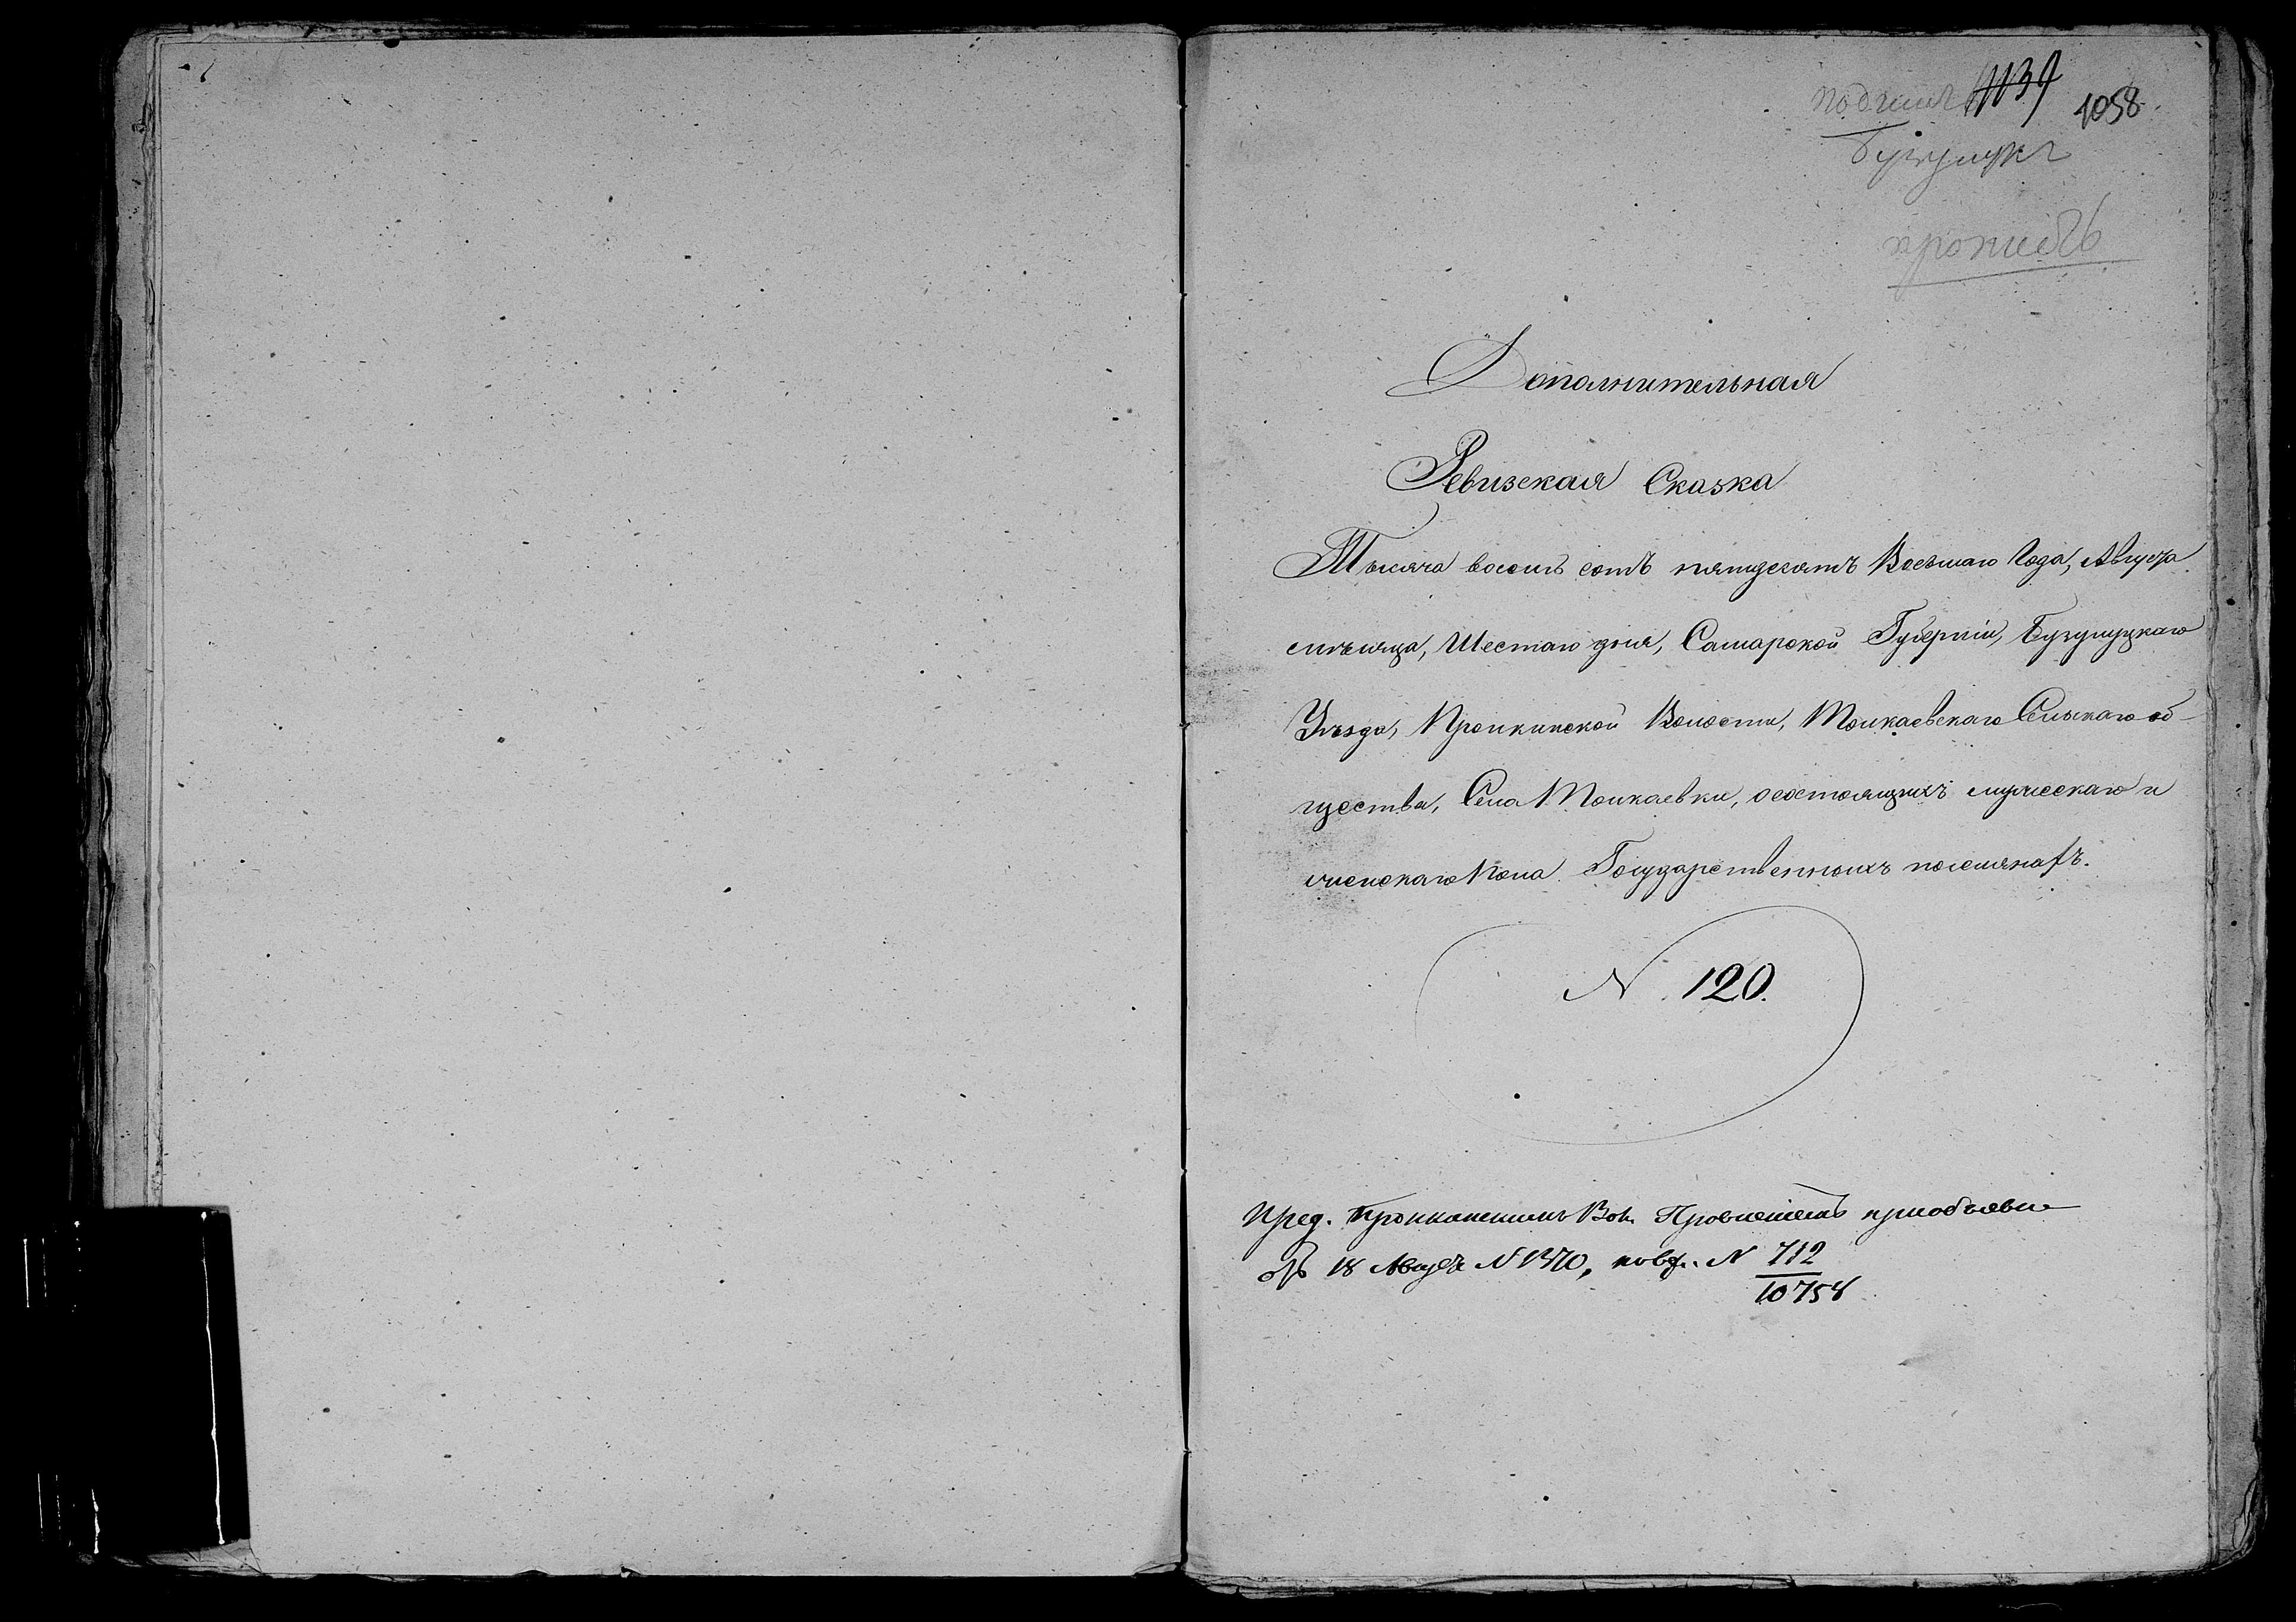 1139
1058.
Бузулукъ
Дополнительная
Ревизская Сказка
Тысяча восемь сотъ пятидесятъ Восьмаго Года, Августа
мѣсяца, Шестаго дня, Самарской Губерніи, Бузулуцкаго
Уѣзда, Пронкинской Волости, Толкаевскаго Сельскаго об-
щества, Села Толкаевки, о состоящихъ мужескаго и
женскаго пола Государственныхъ поселянахъ.
N 120.
Пред. Пронкинскимъ Вол. Правленіемъ при объявле
отъ 18 Августа N 1370, по вх. N 712
10758